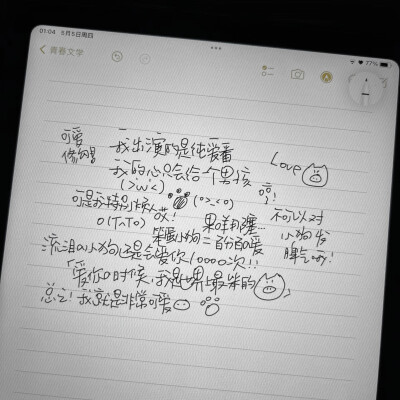 01:04 5月5日周四
77%
青春文学
可爱
修狗!
我出演的是纯爱番
我的心只会给一个男孩
Love
(>ω<)
(o>_<o)
哼!
可是我特别烦人哎!
果咩那塞...
不可以对
小狗发
脾气呦!
o(T^T)o
笨蛋小狗三百分可爱
流泪的小狗还是会爱你10000次!!
「爱你的时候,我是世界上最笨的」
总之!我就是非常可爱